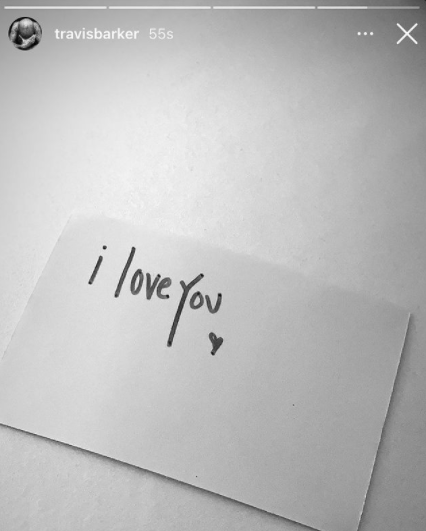 travisbarker 55s
i love you